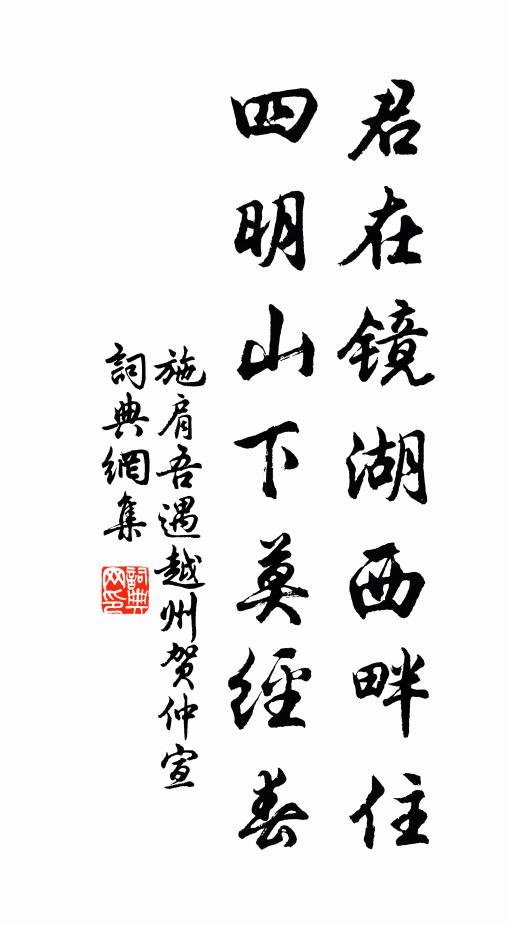 君在镜湖西畔住
四明山下莫經春
施肩吾遇越州贺仲宣
詞典網集
詞典网印